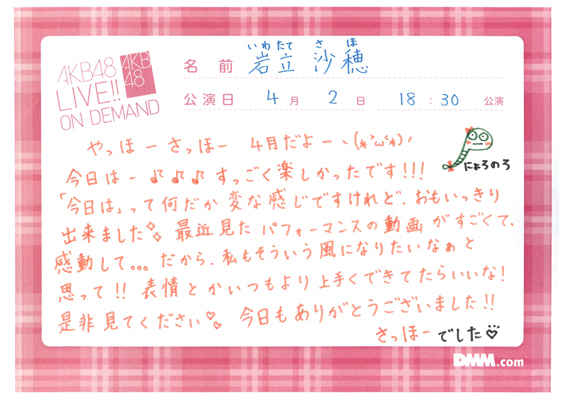 AKB48
LIVE!!
ON DEMAND
AKB
48
いわたて さほ
名前 岩立 沙穂
公演日 4月 2日 18:30 公演
やっほーさっほー 4月だよー、(*>ω<*)ノ
今日はー♪♪♪すっごく楽しかったです!!!
「今日は」って何だか変な感じですけれど、おもいっきり
出来ました 最近見たパフォーマンスの動画がすごくて、
感動して。。。だから、私もそういう風になりたいなぁと
思って!! 表情とかいつもより上手くできてたらいいな!
是非見てください 今日もありがとうございました!!
さっほーでした♡
にょろのろ
DMM.com